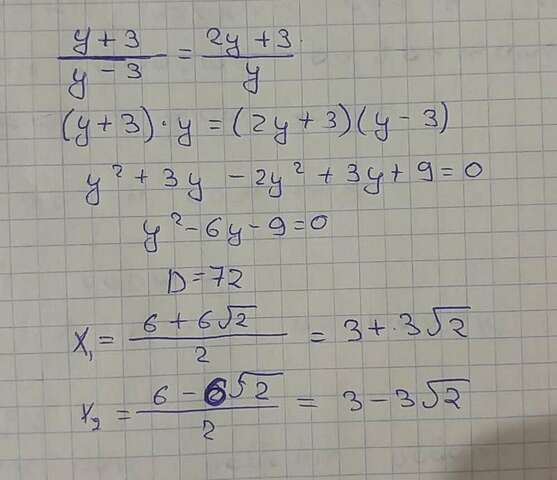 (y + 3)/(y - 3) = (2y + 3)/y
(y + 3) · y = (2y + 3)(y - 3)
y² + 3y - 2y² + 3y + 9 = 0
y² - 6y - 9 = 0
D = 72
x₁ = (6 + 6√2)/2 = 3 + 3√2
x₂ = (6 - 6√2)/2 = 3 - 3√2